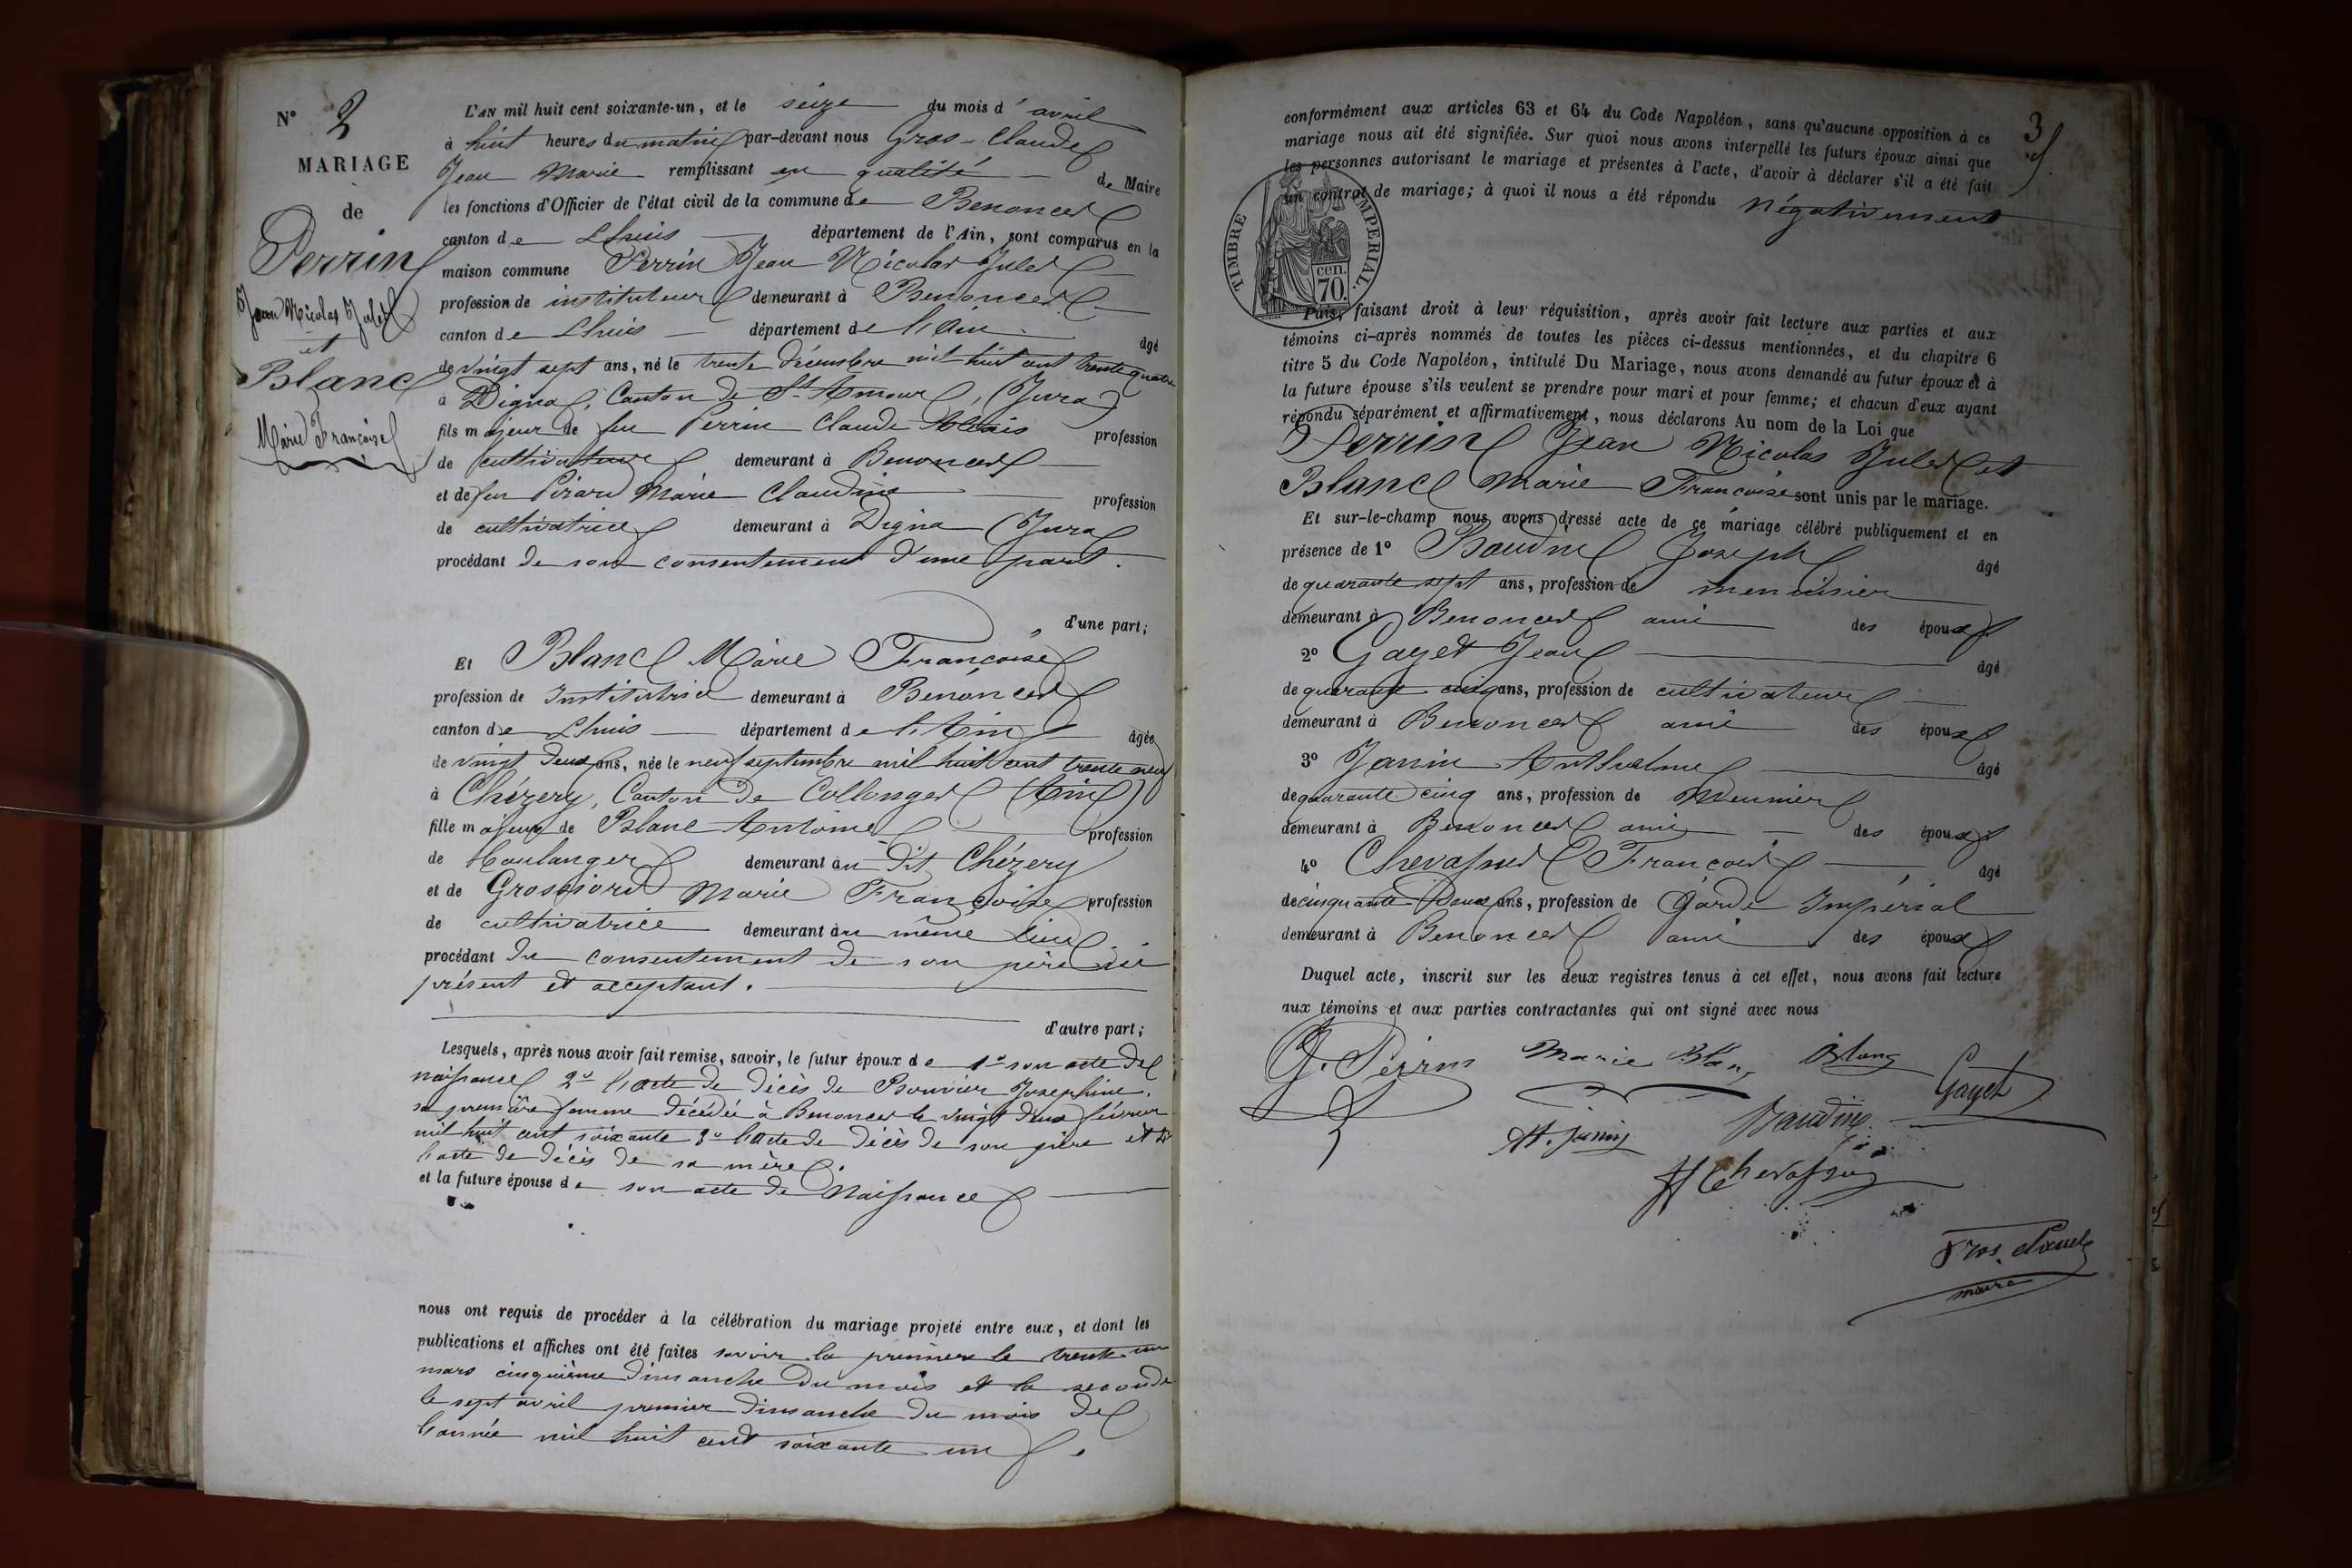 N° 2
MARIAGE
de
Perrin
Jean Nicolas Jules
et
Blanc
Marie Françoise
L'AN mil huit cent soixante-un, et le seize du mois d'avril
à huit heures du matin par-devant nous Gros-Claude
Jean Marie remplissant en qualité de Maire
les fonctions d'Officier de l'état civil de la commune de Benonces
canton de Lhuis département de l'Ain, sont comparus en la
maison commune Perrin Jean Nicolas Jules
profession de instituteur demeurant à Benonces
canton de Lhuis département de l'Ain âgé
de vingt sept ans, né le trente décembre mil huit cent trente quatre
à Digna, Canton de St Amour, (Jura)
fils majeur de feu Perrin Claude Alexis profession
de cultivateur demeurant à Benonces
et de feu Pirard Marie Claudine profession
de cultivatrice demeurant à Digna (Jura
procédant de son consentement d'une part.
d'une part;
Et Blanc Marie Françoise
profession de Institutrice demeurant à Bénonces
canton de Lhuis département de l'Ain âgée
de vingt deux ans, née le neuf septembre mil huit cent trente neuf
à Chézery, Canton de Collonges (Ain)
fille majeure de Blanc Antoine profession
de boulanger demeurant au dit Chézery
et de Grossiord Marie Françoise profession
de cultivatrice demeurant au même lieu
procédant du consentement de son père ici
présent et acceptant.
d'autre part;
Lesquels, après nous avoir fait remise, savoir, le futur époux de 1° son acte de
naissance 2° l'acte de décès de Bouvier Josephine,
sa première femme décédée à Benonces le vingt deux février
mil huit cent soixante 3° l'acte de décès de son père et 4°
l'acte de décès de sa mère.
et la future épouse de son acte de naissance
nous ont requis de procéder à la célébration du mariage projeté entre eux, et dont les
publications et affiches ont été faites savoir la première le trente un
mars cinquième dimanche du mois et la seconde
le sept avril premier dimanche du mois de
l'année mil huit cent soixante un.
3
conformément aux articles 63 et 64 du Code Napoléon, sans qu'aucune opposition à ce
mariage nous ait été signifiée. Sur quoi nous avons interpellé les futurs époux ainsi que
les personnes autorisant le mariage et présentes à l'acte, d'avoir à déclarer s'il a été fait
un contrat de mariage; à quoi il nous a été répondu négativement
TIMBRE IMPERIAL.
cen.
70.
Puis, faisant droit à leur réquisition, après avoir fait lecture aux parties et aux
témoins ci-après nommés de toutes les pièces ci-dessus mentionnées, et du chapitre 6
titre 5 du Code Napoléon, intitulé Du Mariage, nous avons demandé au futur époux et à
la future épouse s'ils veulent se prendre pour mari et pour femme; et chacun d'eux ayant
répondu séparément et affirmativement, nous déclarons Au nom de la Loi que
Perrin Jean Nicolas Jules et
Blanc Marie Françoise sont unis par le mariage.
Et sur-le-champ nous avons dressé acte de ce mariage célébré publiquement et en
présence de 1° Baudin Joseph âgé
de quarante sept ans, profession de menuisier
demeurant à Benonces ami des époux
2° Gayet Jean âgé
de quarante cinq ans, profession de cultivateur
demeurant à Benonces ami des époux
3° Janin Anthelme âgé
de quarante cinq ans, profession de Meunier
demeurant à Benonces ami des époux
4° Chevassus François âgé
de cinquante deux ans, profession de Garde Impérial
demeurant à Benonces ami des époux
Duquel acte, inscrit sur les deux registres tenus à cet effet, nous avons fait lecture
aux témoins et aux parties contractantes qui ont signé avec nous
J. Perrin Marie Blanc Blanc
Gayet
At. Janin Baudin
Chevassus
Gros Claude
maire